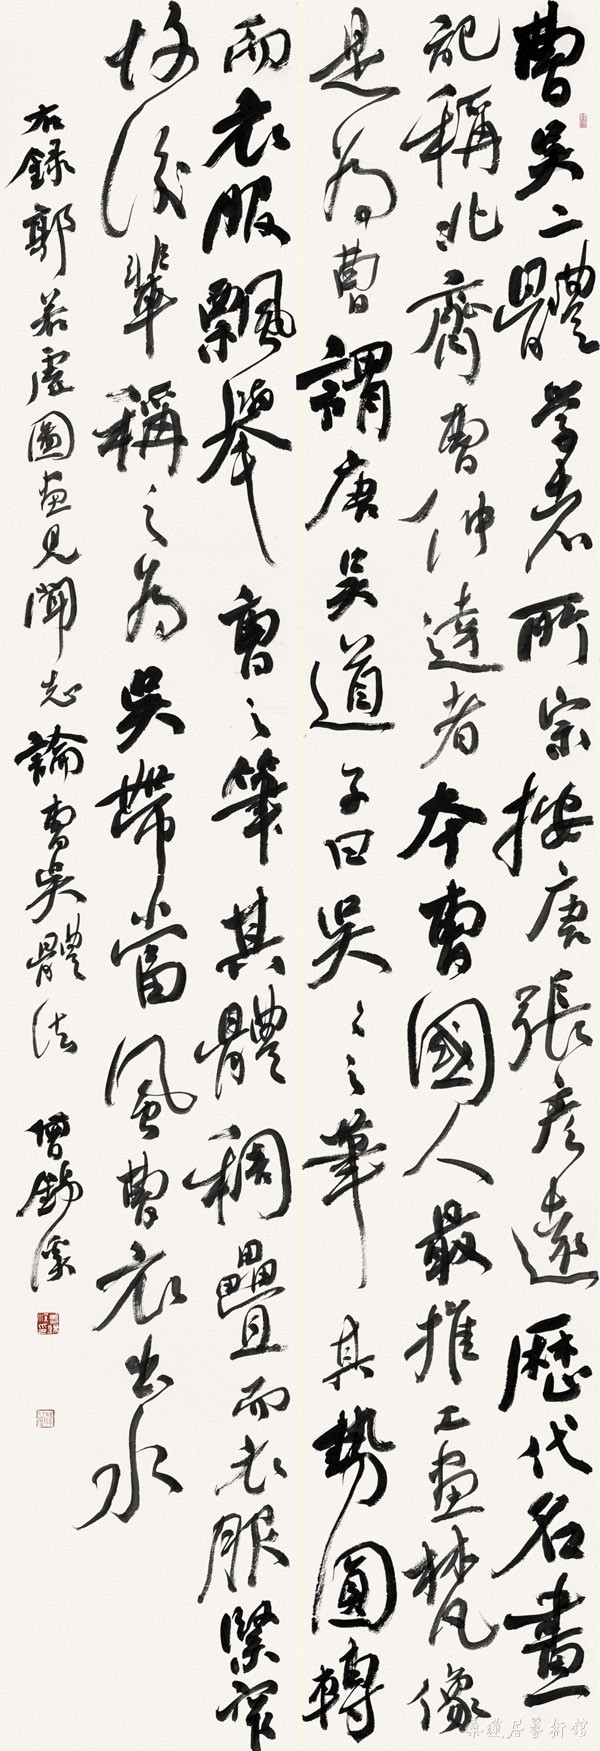 曹吳二體學者所宗按唐張彥遠歷代名畫
記稱北齊曹仲達者本曹國人最推工畫梵像
是為曹謂唐吳道子曰吳吳之筆其勢圓轉
而衣服飄舉曹之筆其體稠疊而衣服緊窄
故後輩稱之為吳帶當風曹衣出水
右錄郭若虛圖畫見聞志論曹吳體法 曾錦溪
藥蓮居藝術館